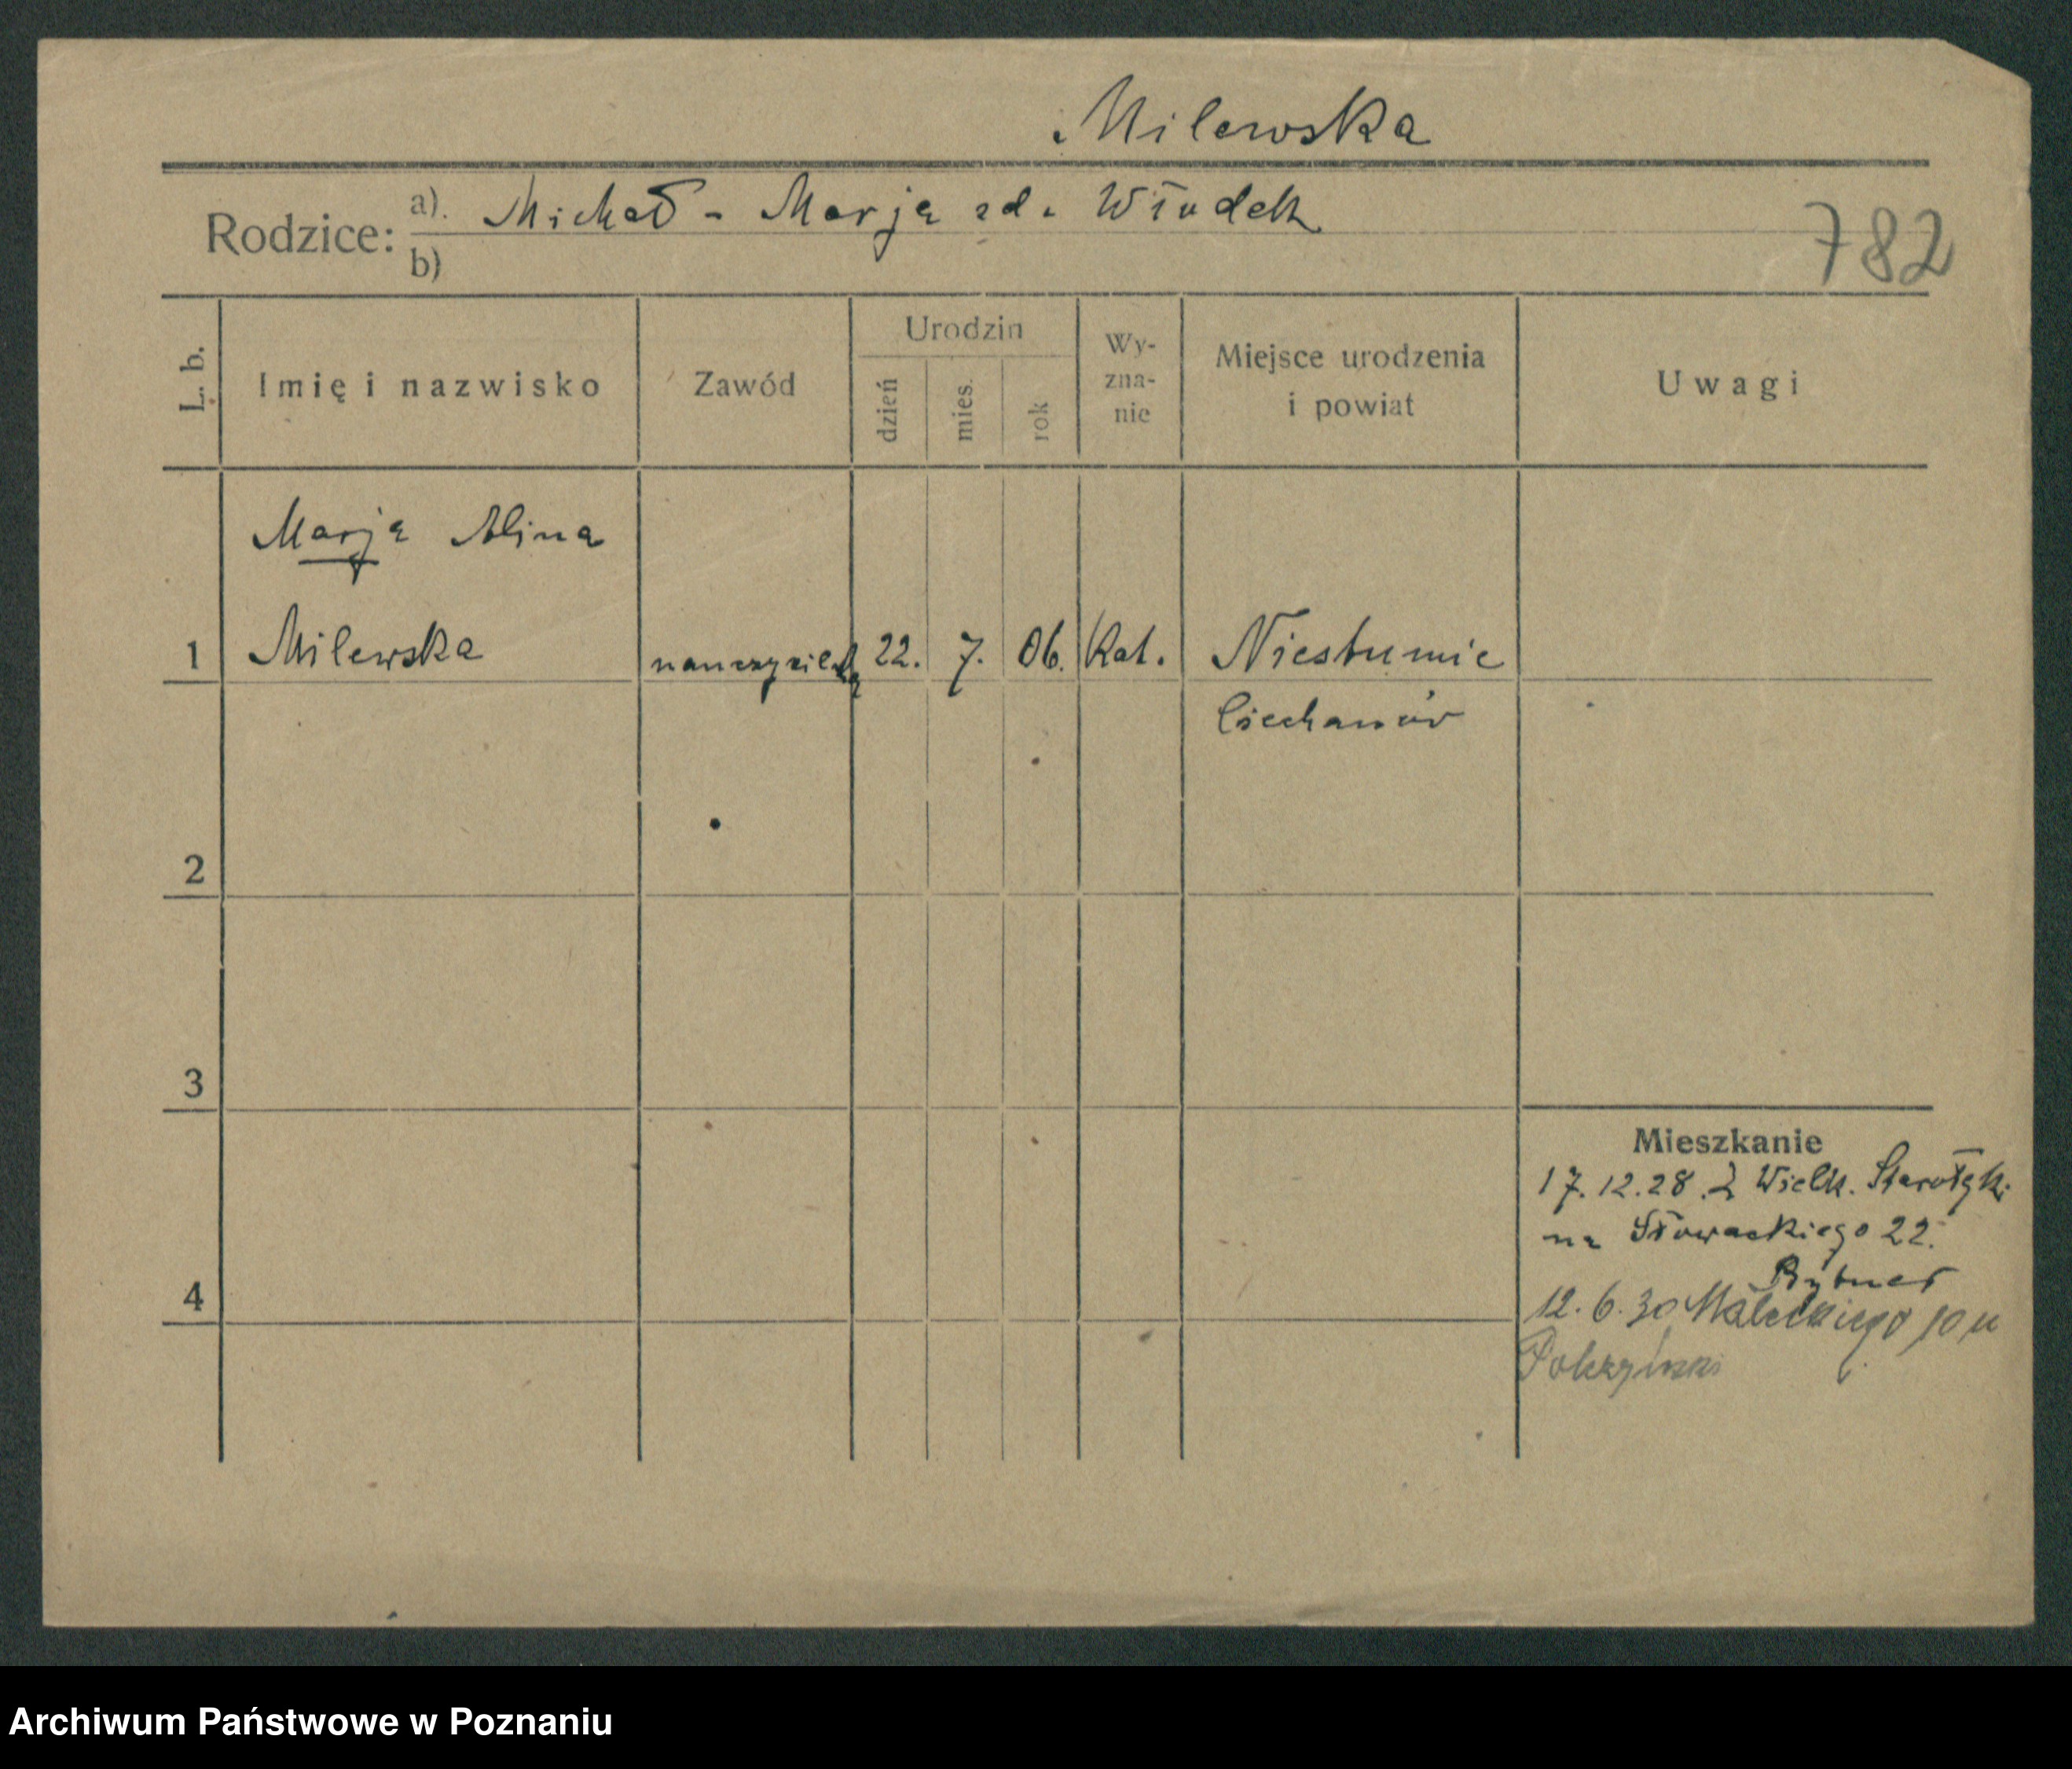 Milewska
Rodzice: a). Michał - Marja zd. Włudek
b)
782
L. b. Imię i nazwisko Zawód Urodzin dzień mies. rok Wy-zna-nie Miejsce urodzenia i powiat Uwagi
Marja Alina
1 Milewska nauczycielka 22. 7. 06. Kat. Niestumie
Ciechanów
2
3
Mieszkanie
17.12.28. z Wielk. Starołęki
na Słowackiego 22.
4
12.6.30 Małeckiego 10 u
Archiwum Państwowe w Poznaniu